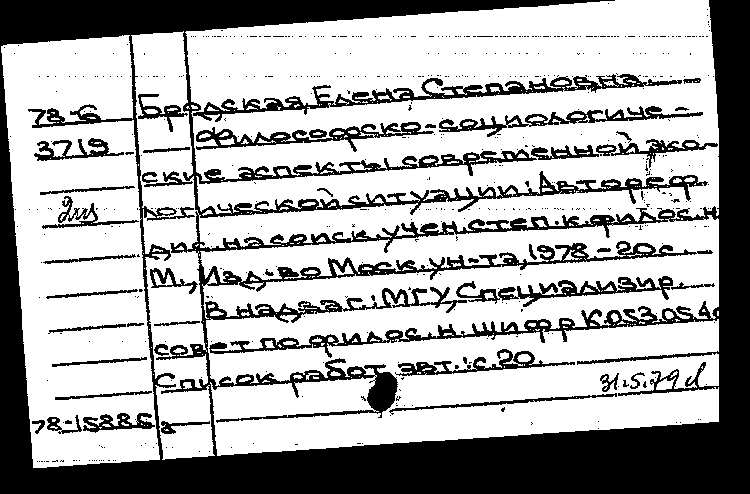 78-6 Бродская, Елена Степановна.
3719 Философско-социологиче-
ские аспекты современной эко-
логической ситуации: Автореф.
дис. на соиск. учен. степ. к. филос. н.
М., Изд-во Моск. ун-та, 1978 - 20 с.
В надзаг.: МГУ, Специализир.
совет по филос. н. шифр К.053.05.4
Список работ авт.: с. 20.
31.5.79
78-15886 а